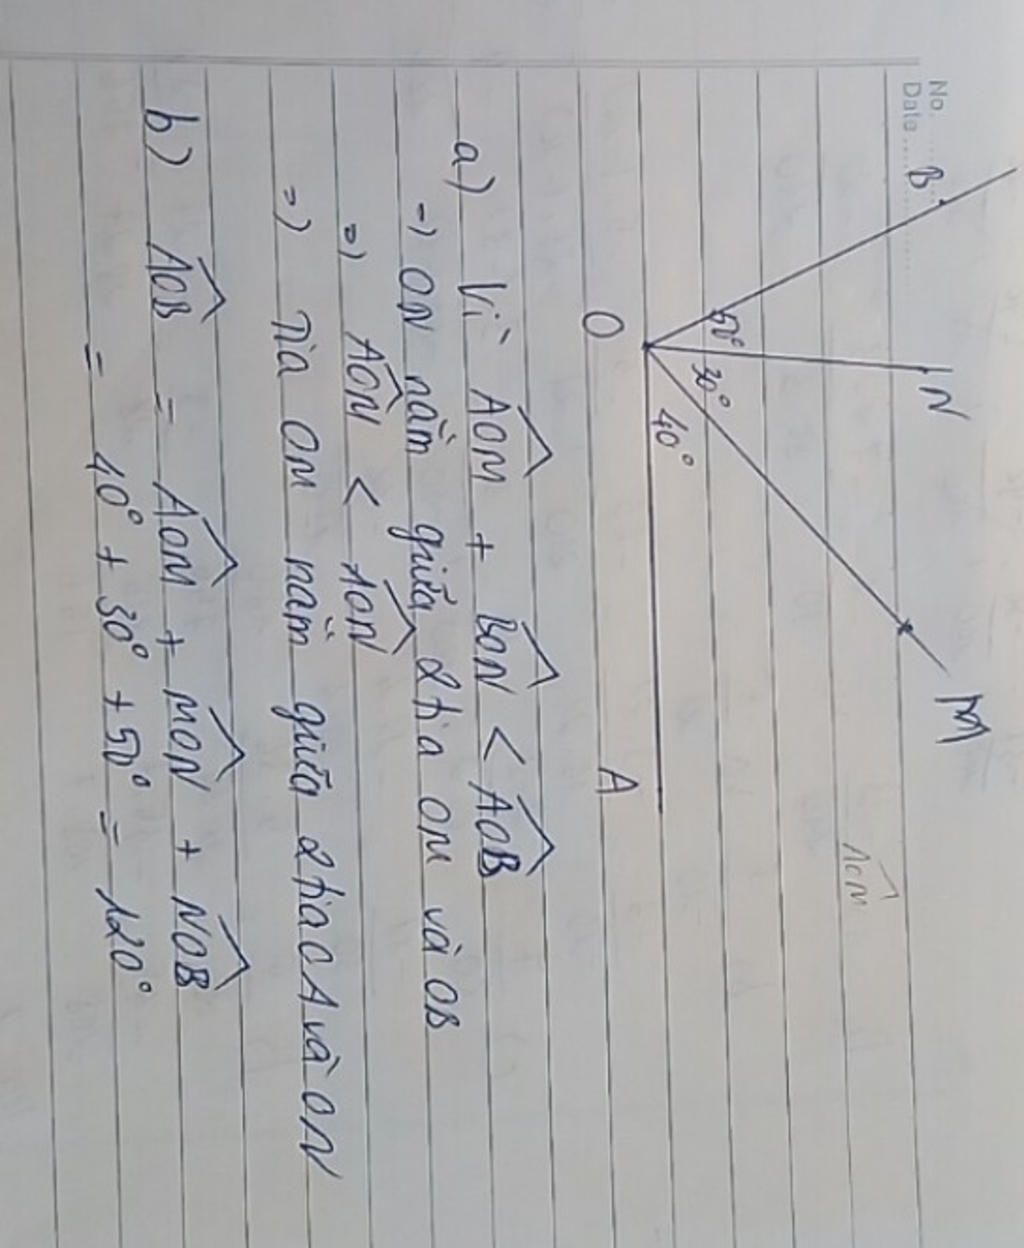 No.
Date
B
N
M
50°
30°
40°
O
A
AOM
a) Vì AOM + BON < AOB
=) ON nằm giữa 2 tia OM và OB
=) AOM < AON
=) Tia OM nằm giữa 2 tia OA và ON
b) AOB = AOM + MON + NOB
= 40° + 30° + 50° = 120°